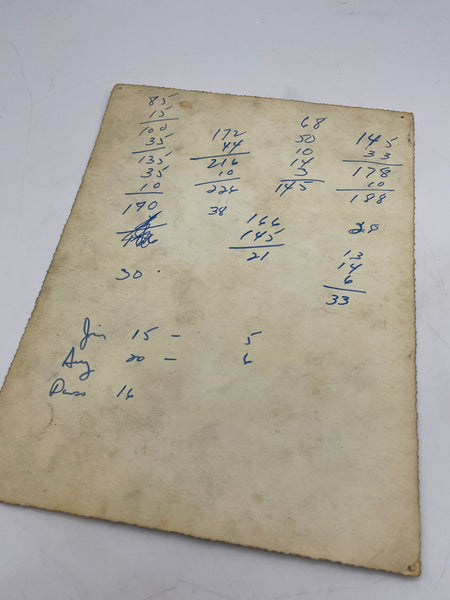 85
15
100
35
135
35
10
170
30
172
44
216
10
226
38
68
50
10
14
3
145
166
145
21
145
33
178
10
188
28
13
14
6
33
Jim 15 - 5
Aug 20 - 6
16